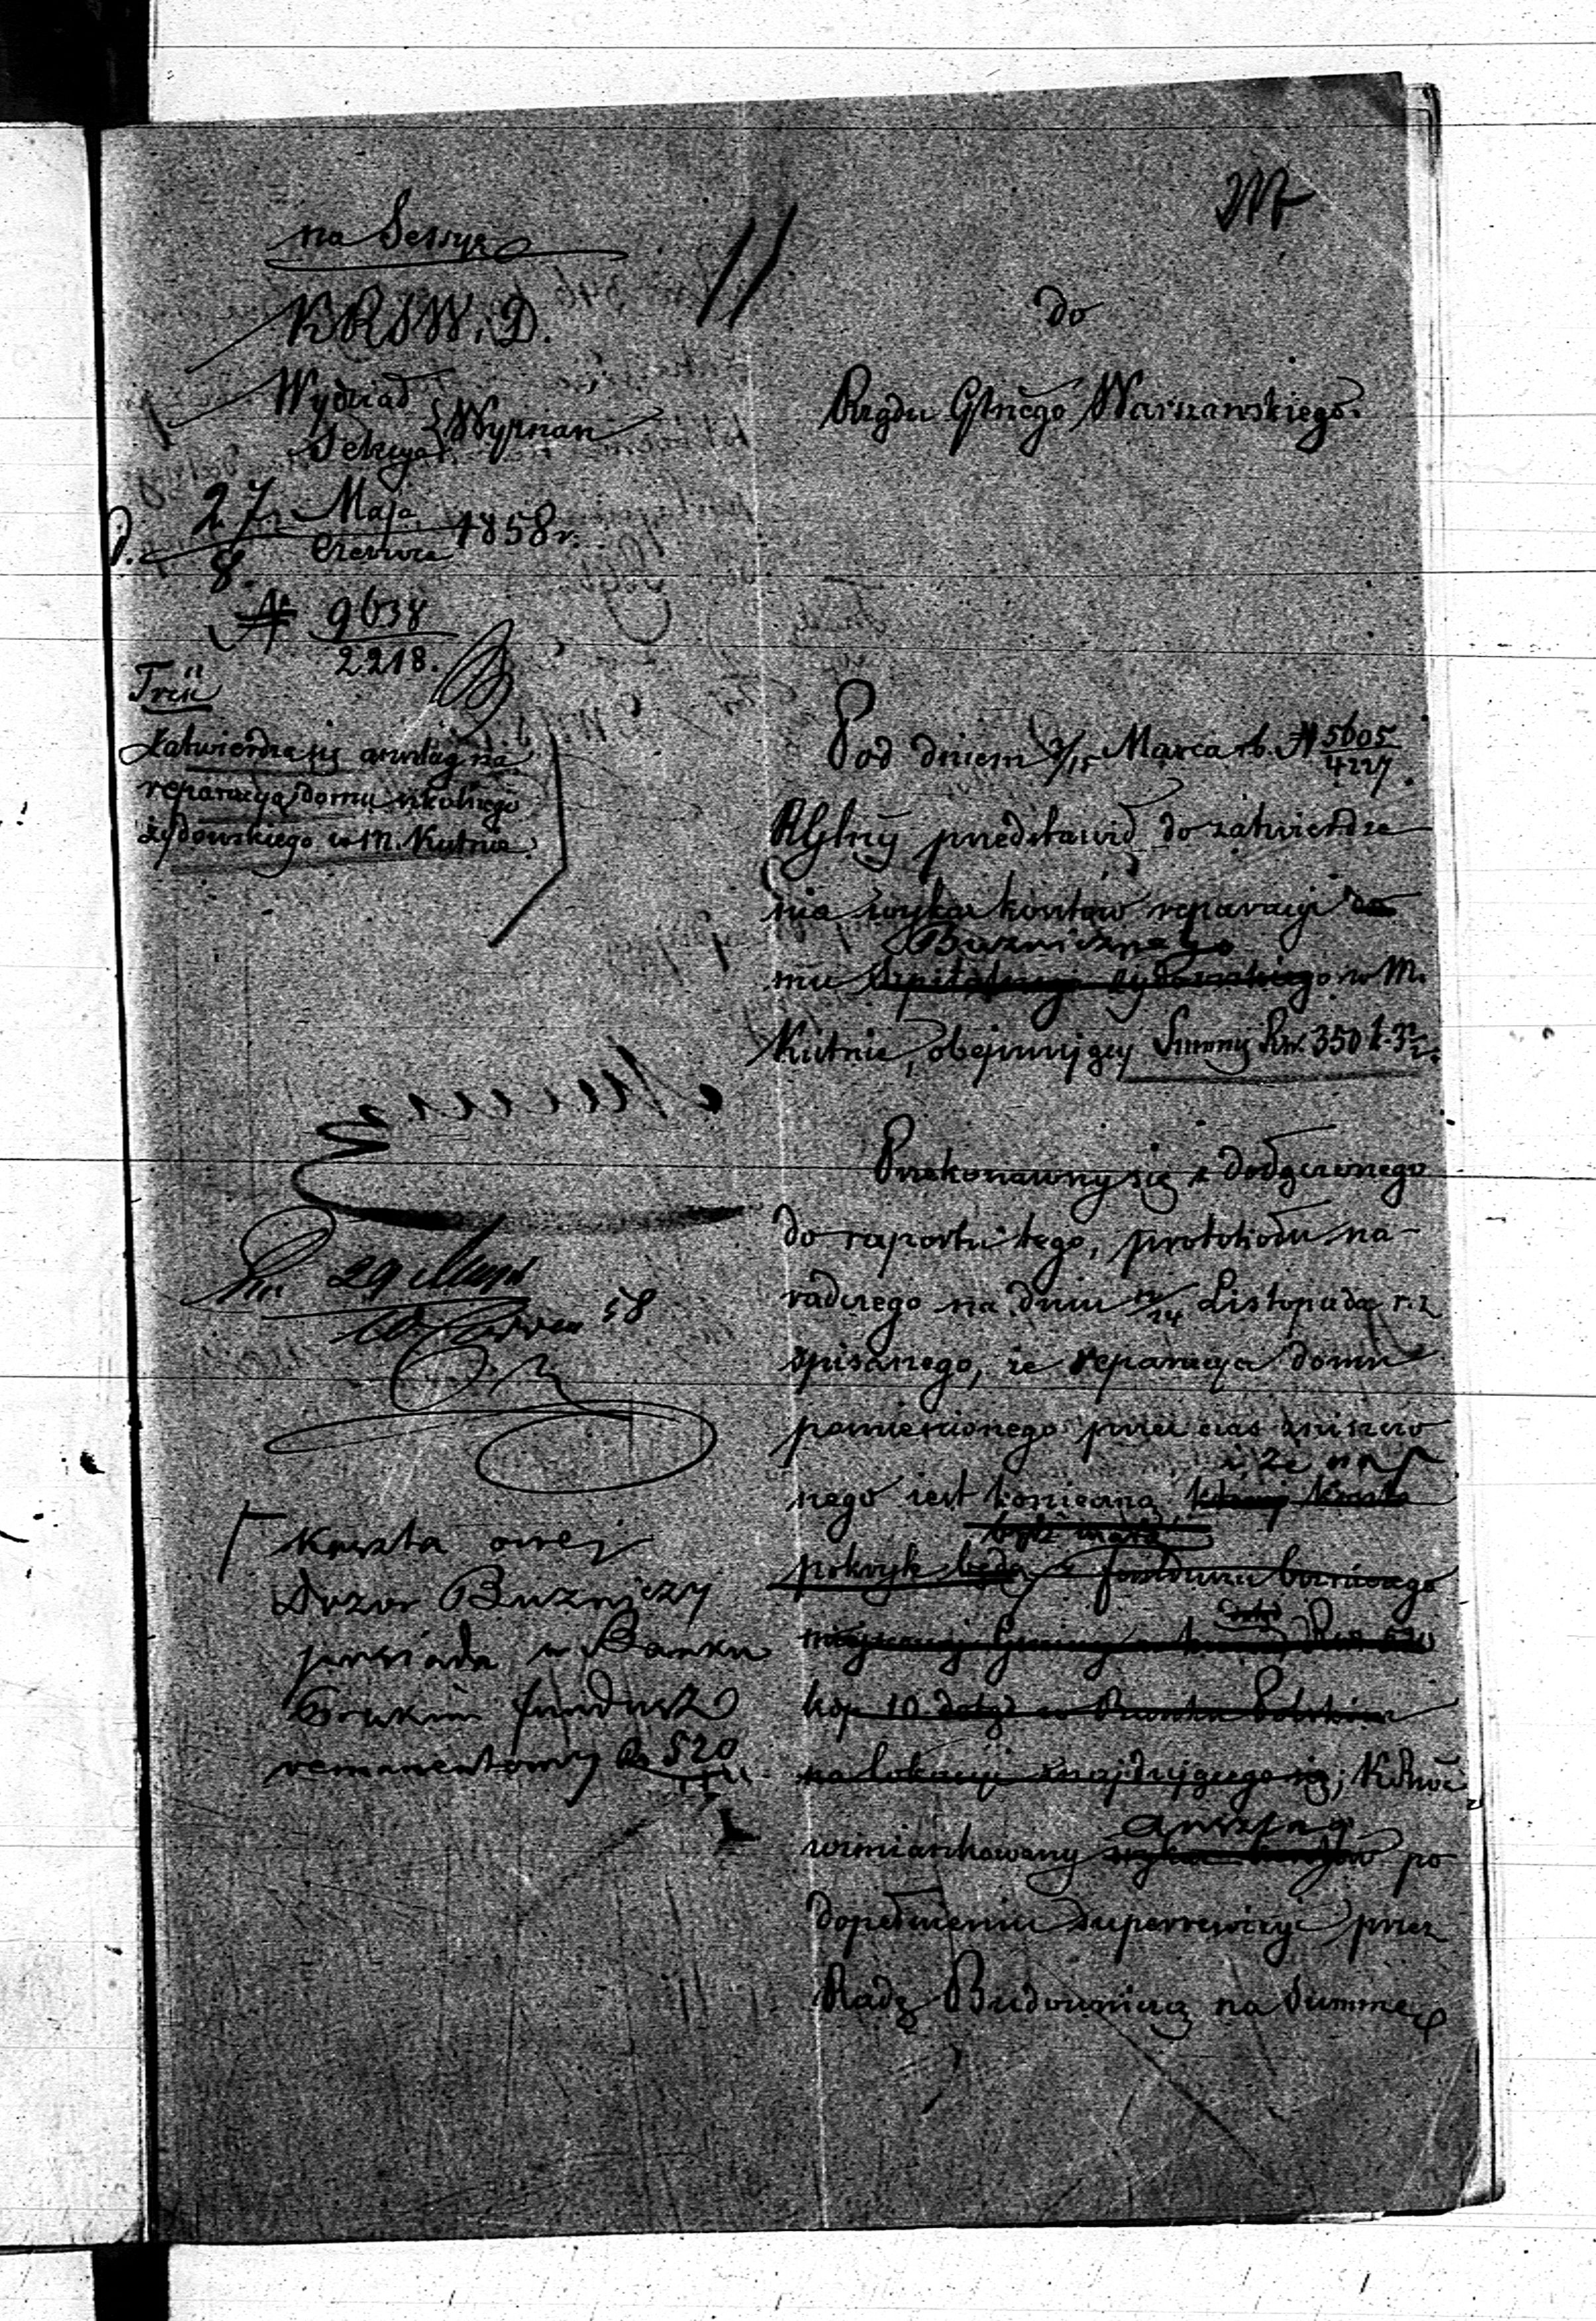 na Sessyę
KRSW. i D.
Wydział
Sekcya } Wyznań
d. 27 Maja / 8 Czerwca 1858 r.
№ 9638 / 2218.
Treść
Zatwierdza się anszlag na
reparacyą domu szkolnego
żydowskiego w M. Kutnie.
29 Maja
10 Czerwca 58
Koszta owej
Dozór Bużniczy
posiada w Banku
Polskim fundusz
remanentowy Rs 520
do
Rządu Głnego Warszawskiego.
Pod dniem 3/15 Marca rb. № 5605 / 4227
RGłny przedstawił do zatwierdze
nia wykaz kosztów reparacyi do
Bużnicznego
mu szpitalnego żydowskiego w M.
Kutnie, obejmujący Summę Rsr. 350 k.
Przekonawszy się z dołączonego
do raportu tego, protokółu na-
radczego na dniu 12/24 Listopada r. z
spisanego, że reparacya domu
pomienionego przez czas zniszczo
i, że na
nego jest konieczną, której koszta
pokryte będą z funduszu bużniczego
miejscowej Gminy w kwocie Rsr 520
kop 10 dotąd w Banku Polskim
na lokacyi znajdującego się; KRząd
anszlag
wzmiankowany wykaz kosztów po
dopełnieniu superrewizyi przez
Radę Budowniczą na Summę